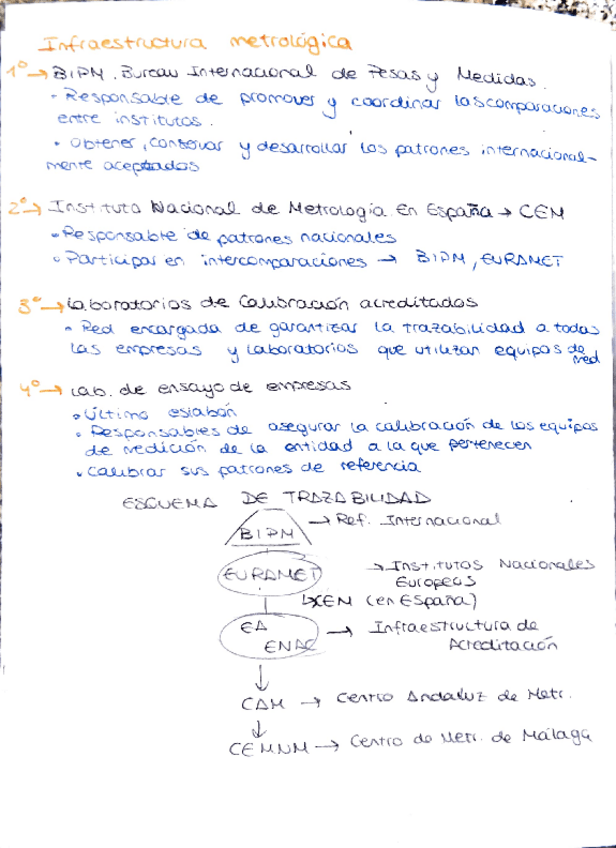 Infraestructura metrológica
1º → BIPM. Bureau Internacional de Pesas y Medidas.
- Responsable de promover y coordinar las comparaciones
entre institutos.
• Obtener, conservar y desarrollar los patrones internacional-
mente aceptados
2º → Instituto Nacional de Metrología. En España → CEM
• Responsable de patrones nacionales
• Participar en intercomparaciones → BIPM, EURAMET
3º → Laboratorios de Calibración acreditados
• Red encargada de garantizar la trazabilidad a todas
las empresas y laboratorios que utilizan equipos de
med
4º → Lab. de ensayo de empresas
• Último eslabón
• Responsables de asegurar la calibración de los equipos
de medición de la entidad a la que pertenecen
• Calibrar sus patrones de referencia
ESQUEMA DE TRAZABILIDAD
BIPM → Ref. Internacional
EURAMET → Institutos Nacionales
Europeos
↳ CEM (en España)
EA
ENAC → Infraestructura de
Acreditación
↓
CAM → Centro Andaluz de Metr.
↓
CEMNM → Centro de Metr. de Málaga